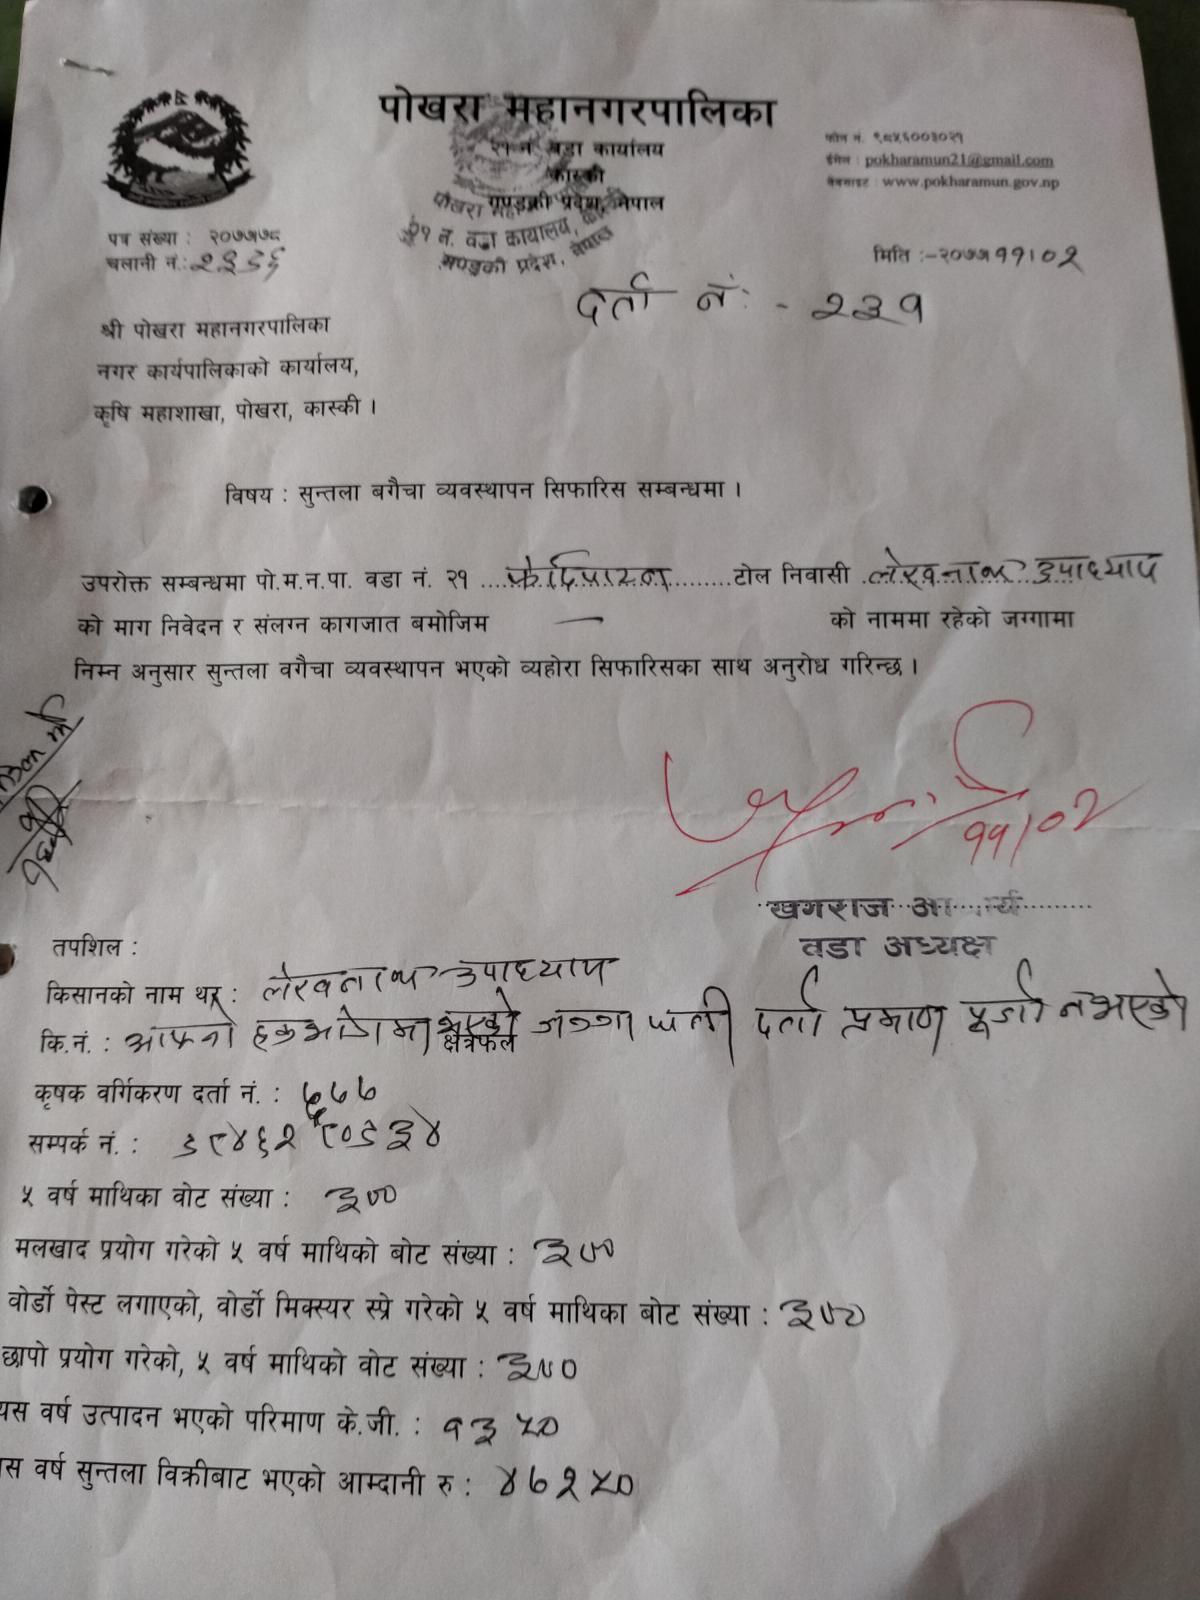 पोखरा महानगरपालिका
२१ न. वडा कार्यालय
कास्की
गण्डकी प्रदेश, नेपाल
पोखरा
२१ न. वडा कार्यालय,
गण्डकी प्रदेश, नेपाल
फोन नं. ९८५६००३०२१
ईमेल : pokharamun21@gmail.com
वेबसाइट : www.pokharamun.gov.np
पत्र संख्या : २०७७।७८
चलानी नं.:
मिति :-२०७७।११।०२
दर्ता नं: - २३१
श्री पोखरा महानगरपालिका
नगर कार्यपालिकाको कार्यालय,
कृषि महाशाखा, पोखरा, कास्की ।
विषय : सुन्तला बगैचा व्यवस्थापन सिफारिस सम्बन्धमा ।
उपरोक्त सम्बन्धमा पो.म.न.पा. वडा नं. २१ ....फेदिपाटन........टोल निवासी .लेखनाथ उपाध्याय
को माग निवेदन र संलग्न कागजात बमोजिम — को नाममा रहेको जग्गामा
निम्न अनुसार सुन्तला वगैचा व्यवस्थापन भएको व्यहोरा सिफारिसका साथ अनुरोध गरिन्छ ।
११/०२
खगराज आचार्य
वडा अध्यक्ष
तपशिल :
किसानको नाम थर : लेखनाथ उपाध्याय
कि.नं. : आफ्नो हकभोगमा भएको जग्गा धनी दर्ता प्रमाण पूर्जा नभएको
क्षेत्रफल
कृषक वर्गिकरण दर्ता नं. : ५७७
सम्पर्क नं. :
५ वर्ष माथिका वोट संख्या : ३००
मलखाद प्रयोग गरेको ५ वर्ष माथिको बोट संख्या : ३००
वोर्डो पेस्ट लगाएको, वोर्डो मिक्स्यर स्प्रे गरेको ५ वर्ष माथिका बोट संख्या : ३००
छापो प्रयोग गरेको, ५ वर्ष माथिको वोट संख्या : ३००
यस वर्ष उत्पादन भएको परिमाण के.जी. : १३५०
स वर्ष सुन्तला विक्रीबाट भएको आम्दानी रु : ४७२५०